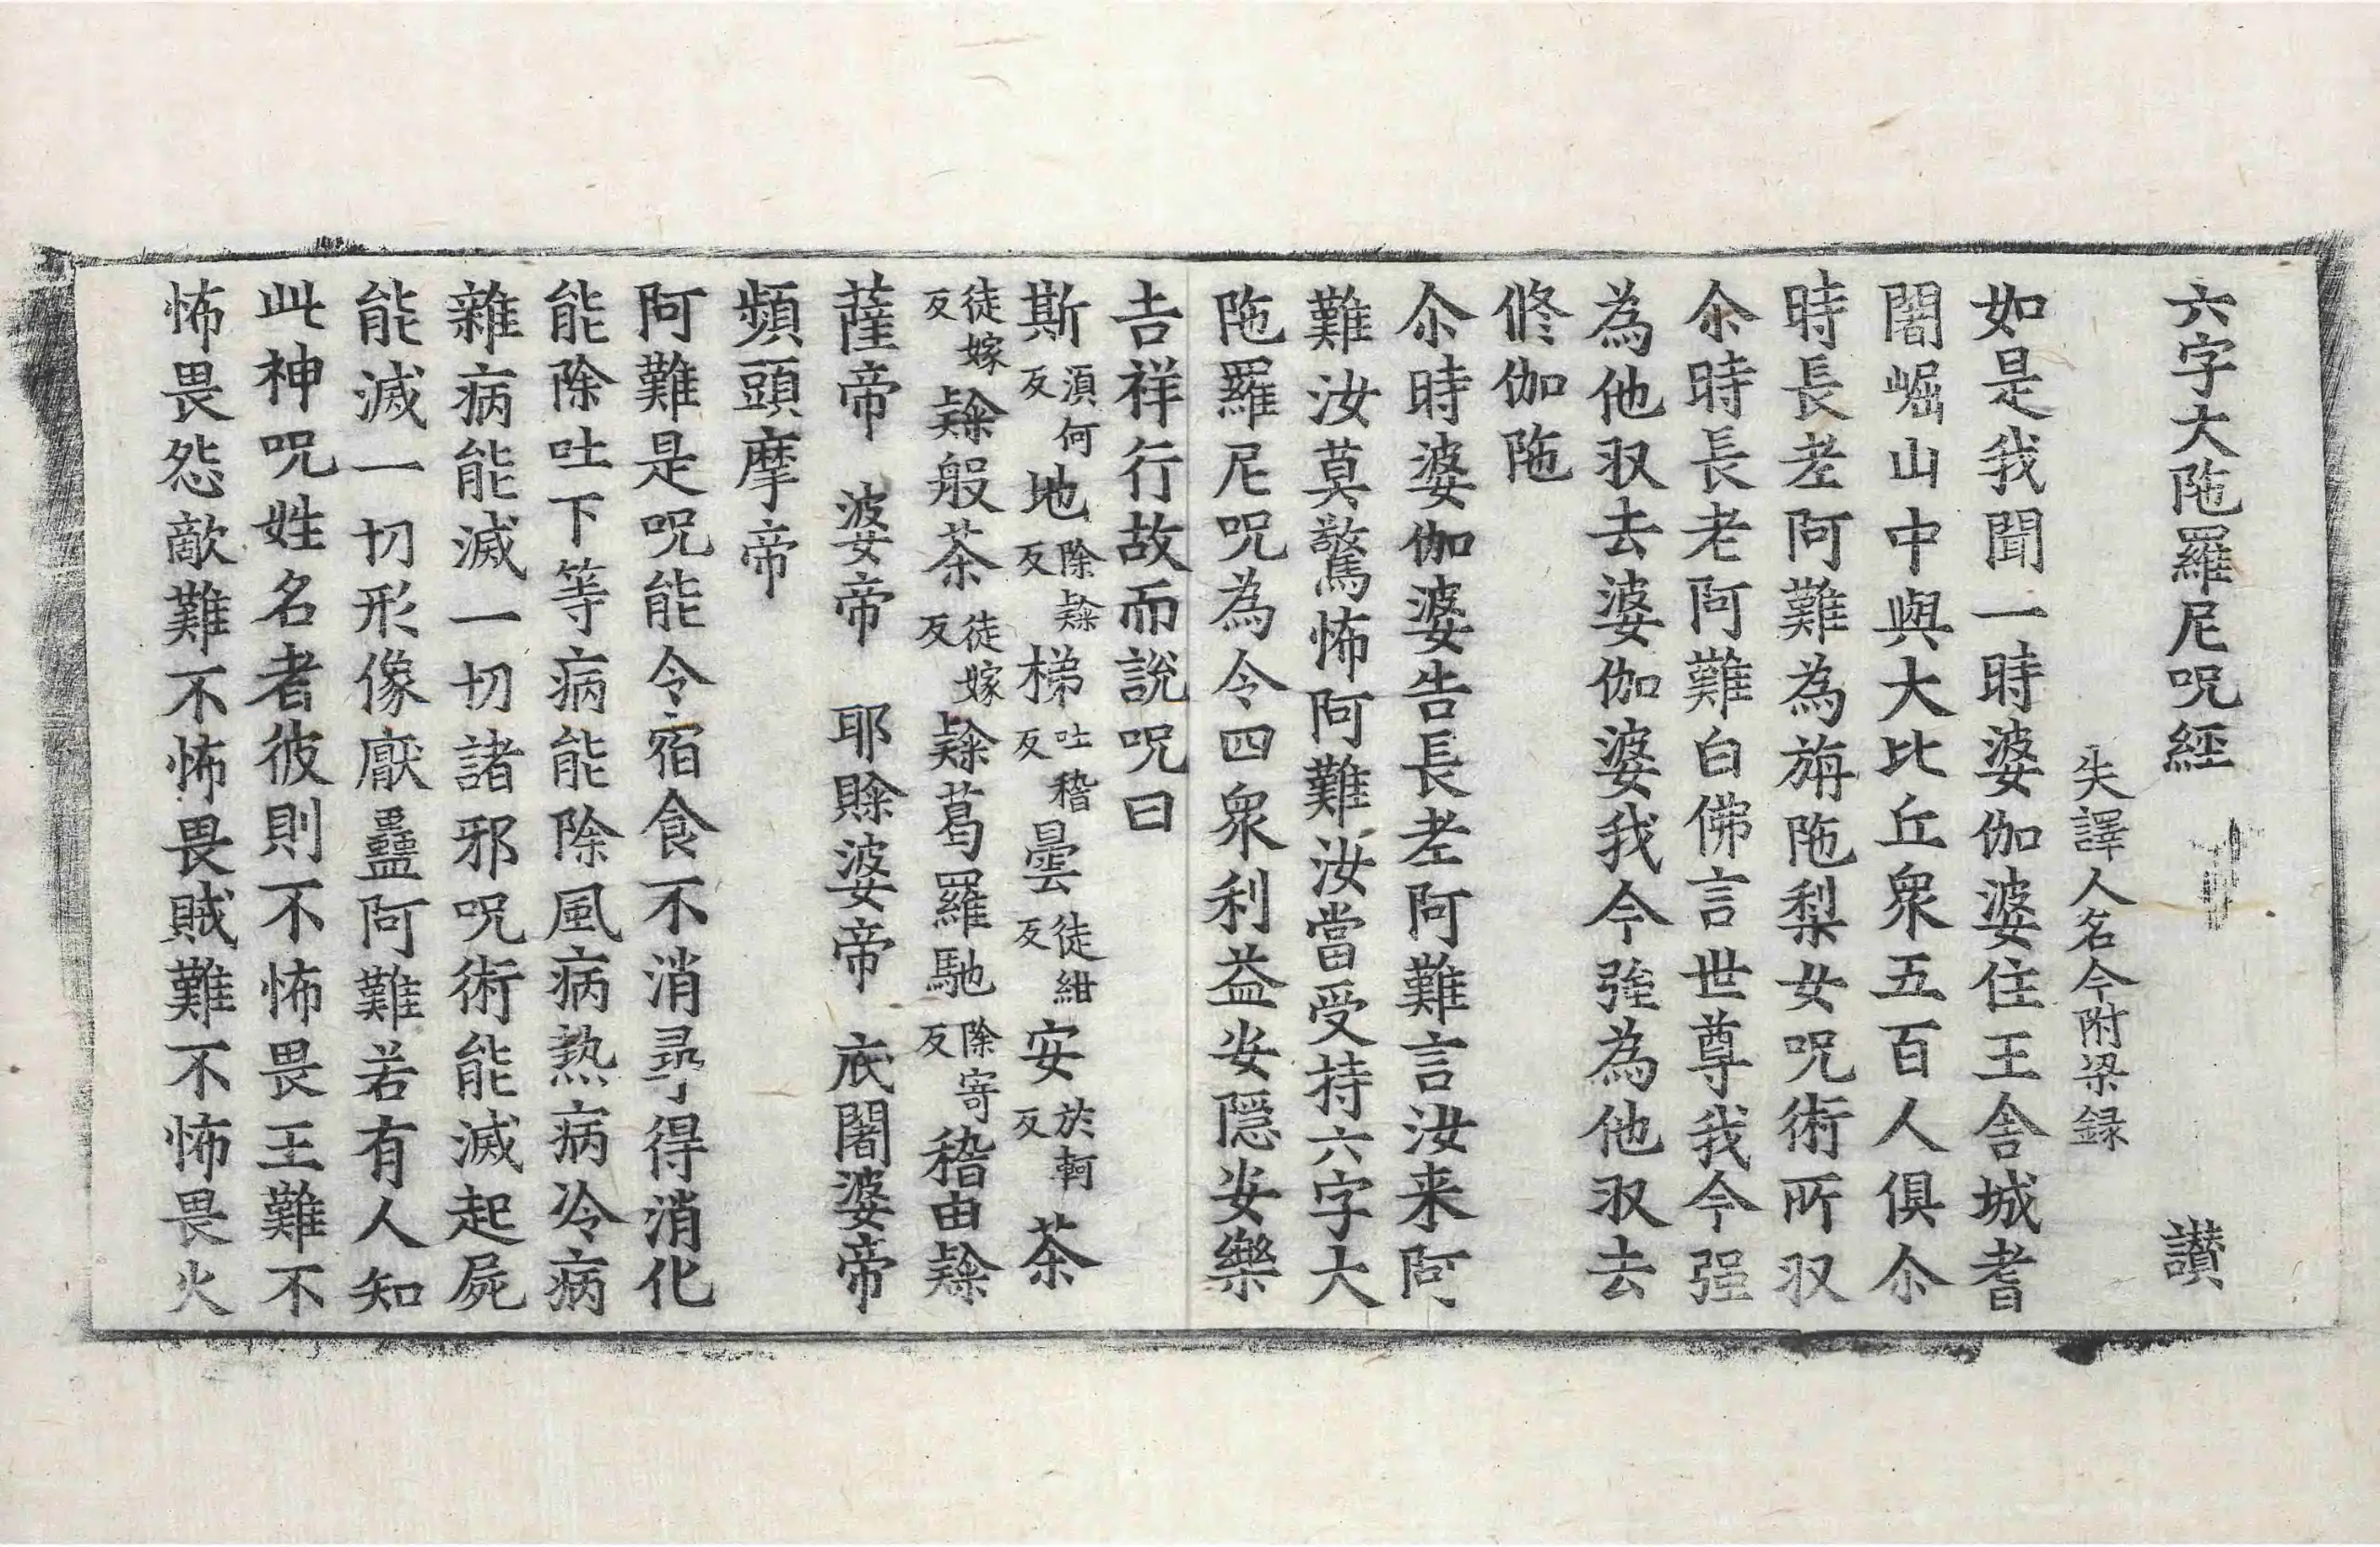 六字大陁羅尼呪經 讃
失譯人名今附梁録
如是我聞一時婆伽婆住王舍城耆
闍崛山中與大比丘衆五百人俱尒
時長老阿難為旃陁梨女呪術所収
尒時長老阿難白佛言世尊我今强
為他収去婆伽婆我今強為他収去
脩伽陁
尒時婆伽婆告長老阿難言汝来阿
難汝莫驚怖阿難汝當受持六字大
陁羅尼呪為令四衆利益安隱安樂
吉祥行故而說呪曰
斯須何反地除𨽻反梯吐稽反曇徒紺反安於軻反茶
徒嫁反𨽻般茶徒嫁反𨽻葛羅馳除寄反稽由𨽻
薩帝 婆帝 耶賖婆帝 底闍婆帝
頻頭摩帝
阿難是呪能令宿食不消尋得消化
能除吐下等病能除風病熱病冷病
雜病能滅一切諸邪呪術能滅起屍
能滅一切形像厭蠱阿難若有人知
此神呪姓名者彼則不怖畏王難不
怖畏怨敵難不怖畏賊難不怖畏火